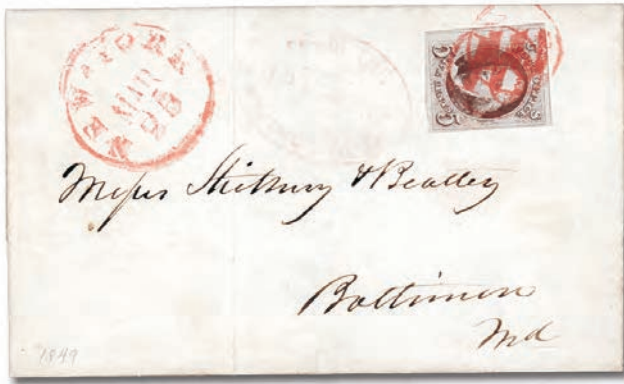 NEW-YORK
MAR
28
5
5
Messrs Stickney & Beatley
Baltimore
Md
1849